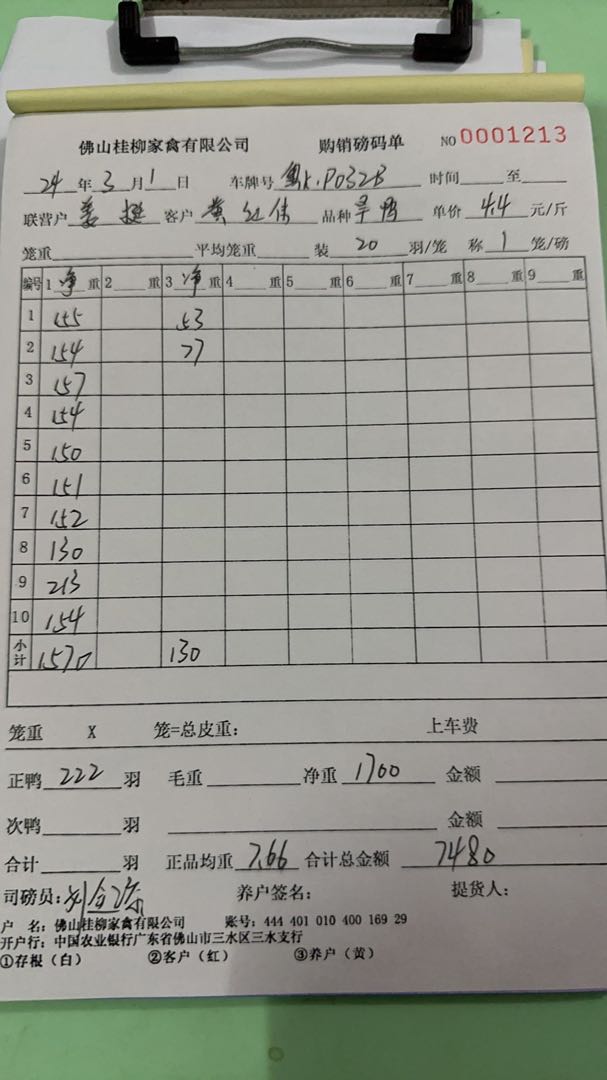 佛山桂柳家禽有限公司 购销磅码单 NO 0001213
24年3月1日 车牌号 K·P032B 时间 至
联营户 姜挺 客户 黄红伟 品种 旱鸭 单价 4.4 元/斤
笼重 平均笼重 装 20 羽/笼 称 1 笼/磅
编号 1 净 重 2 重 3 净 重 4 重 5 重 6 重 7 重 8 重 9 重
1 155 53
2 154 77
3 157
4 154
5 150
6 151
7 152
8 130
9 213
10 154
小计 1570 130
笼重 X 笼=总皮重: 上车费
正鸭 222 羽 毛重 净重 1700 金额
次鸭 羽 金额
合计 羽 正品均重 7.66 合计总金额 7480
司磅员: 养户签名: 提货人:
户 名: 佛山桂柳家禽有限公司 账号: 444 401 010 400 169 29
开户行: 中国农业银行广东省佛山市三水区三水支行
①存根（白） ②客户（红） ③养户（黄）